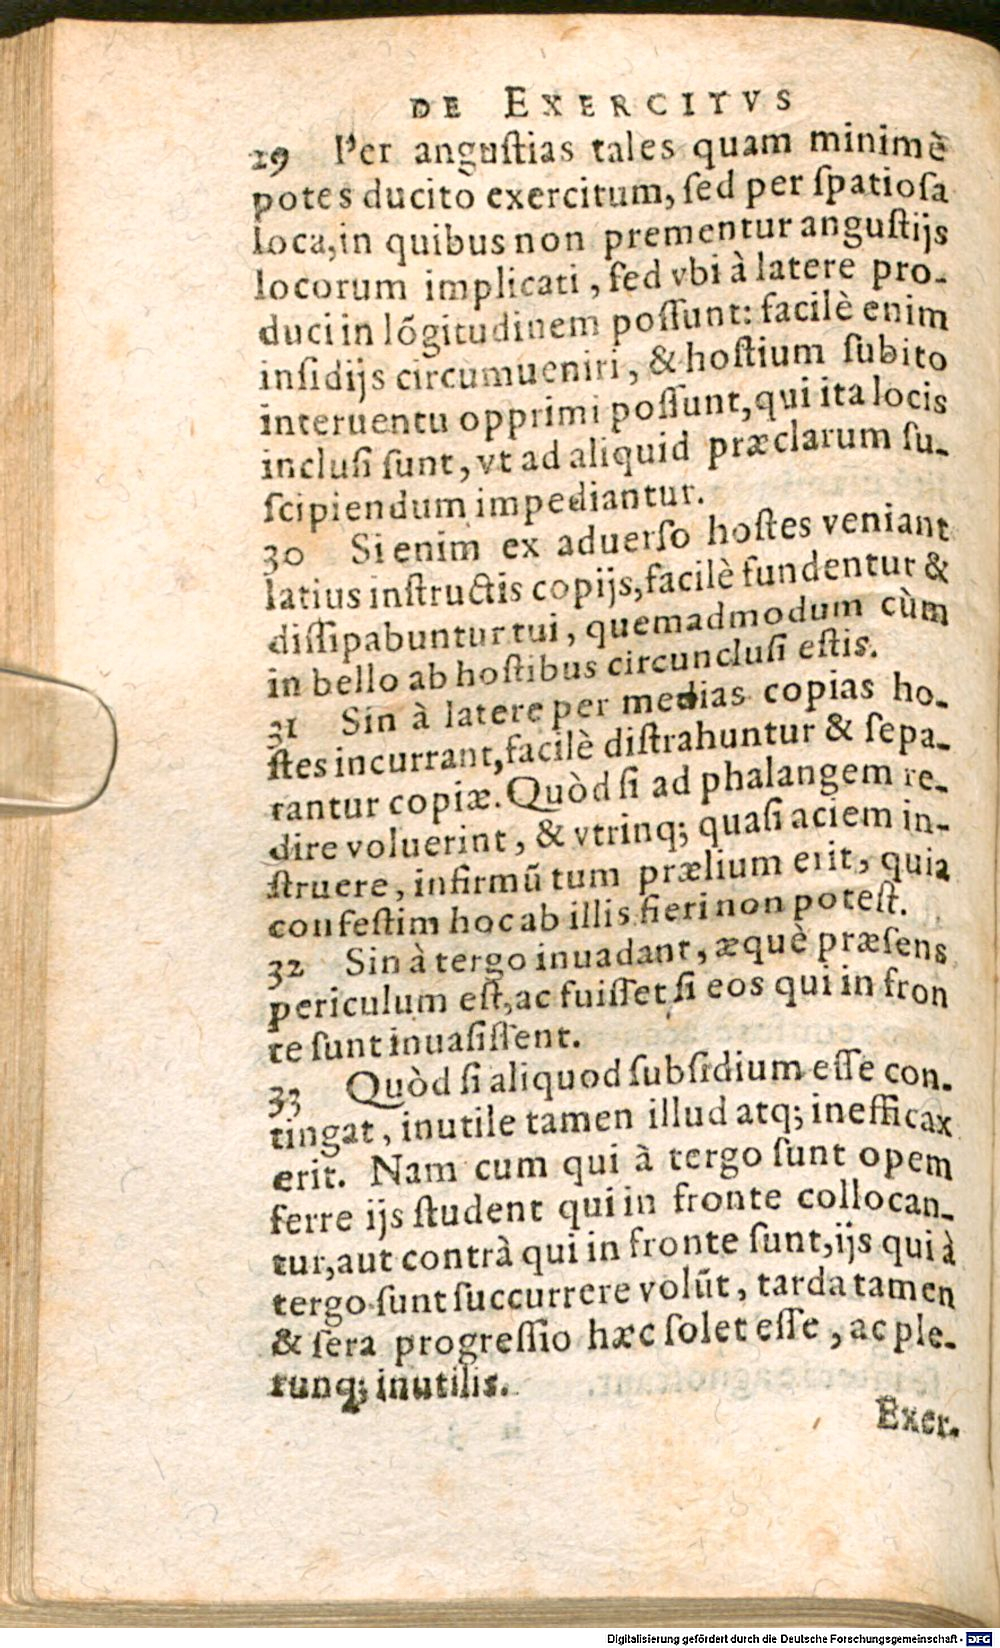 DE EXERCITVS
29 Per anguſtias tales quam minimè
potes ducito exercitum, ſed per ſpatioſa
loca, in quibus non prementur anguſtijs
locorum implicati, ſed vbi à latere pro-
duci in lõgitudinem poſſunt: facilè enim
inſidijs circumueniri, & hoſtium ſubito
interuentu opprimi poſſunt, qui ita locis
incluſi ſunt, vt ad aliquid præclarum ſu-
ſcipiendum impediantur.
30 Si enim ex aduerſo hoſtes veniant
latius inſtructis copijs, facilè fundentur &
diſſipabuntur tui, quemadmodum cùm
in bello ab hoſtibus circuncluſi eſtis.
31 Sin à latere per medias copias ho-
ſtes incurrant, facilè diſtrahuntur & ſepa-
rantur copiæ. Quòd ſi ad phalangem re-
dire voluerint, & vtrinq; quaſi aciem in-
ſtruere, infirmũ tum prælium erit, quia
confeſtim hoc ab illis fieri non poteſt.
32 Sin à tergo inuadant, æquè præſens
periculum eſt, ac fuiſſet ſi eos qui in fron
te ſunt inuaſiſſent.
33 Quòd ſi aliquod ſubſidium eſſe con-
tingat, inutile tamen illud atq; inefficax
erit. Nam cum qui à tergo ſunt opem
ferre ijs ſtudent qui in fronte collocan-
tur, aut contrà qui in fronte ſunt, ijs qui à
tergo ſunt ſuccurrere volũt, tarda tamen
& ſera progreſſio hæc ſolet eſſe, ac ple-
runq; inutilis.
Exer-
Digitalisierung gefördert durch die Deutsche Forschungsgemeinschaft - DFG